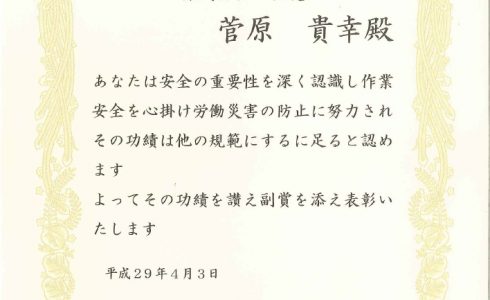 菅原　貴幸殿
あなたは安全の重要性を深く認識し作業
安全を心掛け労働災害の防止に努力され
その功績は他の規範にするに足ると認め
ます
よってその功績を讃え副賞を添え表彰い
たします
平成29年4月3日